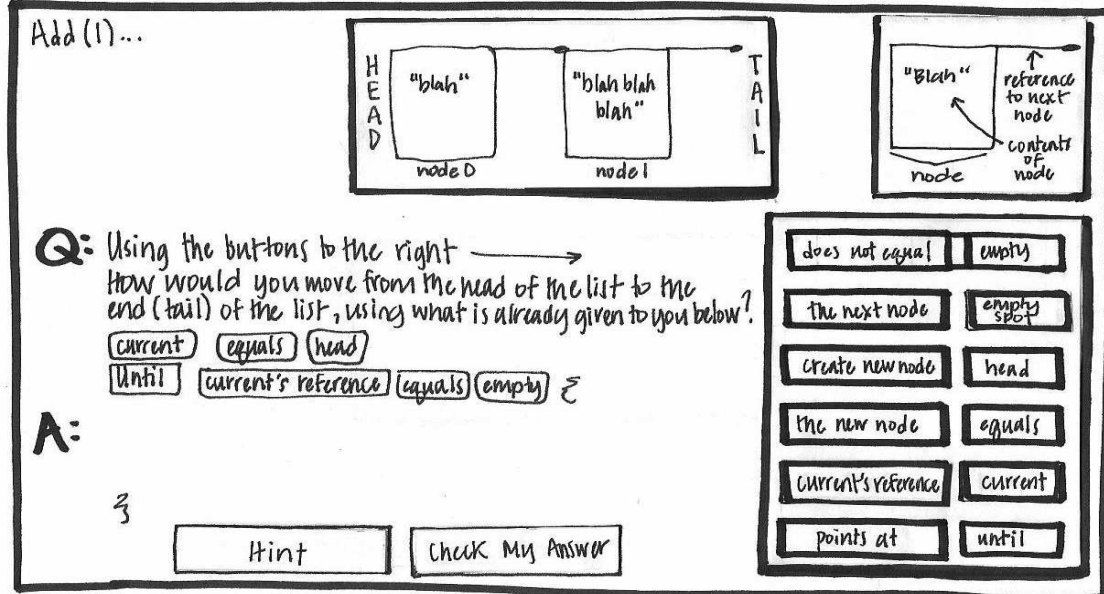 Add (1)...
HEAD
"blah"
node 0
"blah blah
blah"
node 1
TAIL
"Blah"
node
reference
to next
node
contents
of
node
Q: Using the buttons to the right
How would you move from the head of the list to the
end (tail) of the list, using what is already given to you below?
current equals head
Until current's reference equals empty {
A:
}
Hint Check My Answer
does not equal empty
the next node empty spot
create new node head
the new node equals
current's reference current
points at until